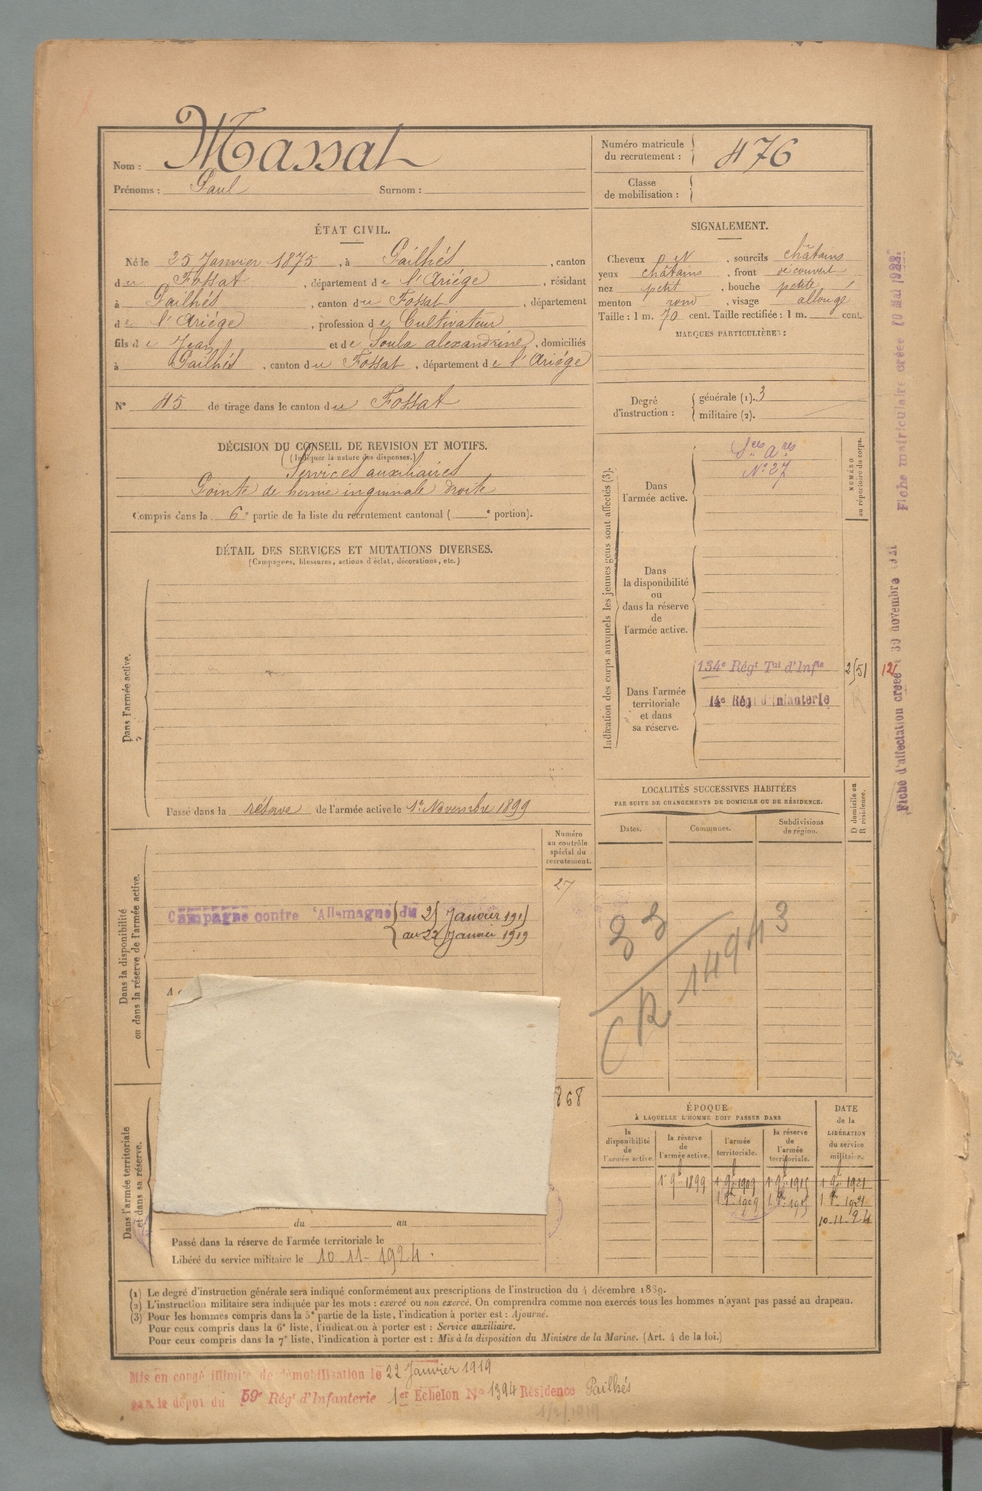 Nom : Massat
Prénoms : Paul Surnom :
Numéro matricule du recrutement : 476
Classe de mobilisation :
ÉTAT CIVIL.
Né le 25 Janvier 1875, à Pailhés, canton
du Fossat, département de l'Ariége, résidant
à Pailhés, canton du Fossat, département
de l'Ariége, profession de Cultivateur
fils de Jean et de Soula alexandrine, domiciliés
à Pailhés, canton du Fossat, département de l'Ariége
N° 45 de tirage dans le canton du Fossat
SIGNALEMENT.
Cheveux , sourcils châtains
yeux châtains, front découvert
nez petit, bouche petite
menton rond, visage allongé
Taille : 1 m. 70 cent. Taille rectifiée : 1 m. cent.
MARQUES PARTICULIÈRES :
Degré d'instruction : générale (1). 3
militaire (2).
DÉCISION DU CONSEIL DE REVISION ET MOTIFS.
(Indiquer la nature des dispenses.)
Services auxiliaires
Pointe de hernie inguinale droite
Compris dans la 6e partie de la liste du recrutement cantonal ( e portion).
DÉTAIL DES SERVICES ET MUTATIONS DIVERSES.
(Campagnes, blessures, actions d'éclat, décorations, etc.)
Dans l'armée active.
Passé dans la réserve de l'armée active le 1er Novembre 1899
Indication des corps auxquels les jeunes gens sont affectés (3).
NUMÉRO au répertoire du corps.
Dans l'armée active.
Ses Ares
N° 27
Dans la disponibilité ou dans la réserve de l'armée active.
Dans l'armée territoriale et dans sa réserve.
134e Régt Tal d'Infie
14e Régt d'Infanterie
Fiche matriculaire créée 10 Mai 1922.
Fiche d'affectation créée 30 novembre
Numéro au contrôle spécial du recrutement.
27
Dans la disponibilité ou dans la réserve de l'armée active.
Campagne contre l'Allemagne du Janvier
au 22 Janvier 1919
868
LOCALITÉS SUCCESSIVES HABITÉES
PAR SUITE DE CHANGEMENTS DE DOMICILE OU DE RÉSIDENCE.
Dates. Communes. Subdivisions de région. D domicile ou R résidence.
CR
ÉPOQUE
À LAQUELLE L'HOMME DOIT PASSER DANS
la disponibilité de l'armée active. la réserve de l'armée active. l'armée territoriale. la réserve de l'armée territoriale.
DATE de la LIBÉRATION du service militaire.
1er 9bre 1899 1er 9bre 1909 1er 9bre 1915 1er 9bre 1921
10-11-24
Dans l'armée territoriale et dans sa réserve.
du au
Passé dans la réserve de l'armée territoriale le
Libéré du service militaire le 10-11-1924.
(1) Le degré d'instruction générale sera indiqué conformément aux prescriptions de l'instruction du 4 décembre 1889.
(2) L'instruction militaire sera indiquée par les mots : exercé ou non exercé. On comprendra comme non exercés tous les hommes n'ayant pas passé au drapeau.
(3) Pour les hommes compris dans la 5e partie de la liste, l'indication à porter est : Ajourné.
Pour ceux compris dans la 6e liste, l'indication à porter est : Service auxiliaire.
Pour ceux compris dans la 7e liste, l'indication à porter est : Mis à la disposition du Ministre de la Marine. (Art. 4 de la loi.)
Mis en congé illimité de démobilisation le 22 Janvier 1919
par le dépôt du 59e Régt d'Infanterie 1er Echelon No 1394 Résidence Pailhés